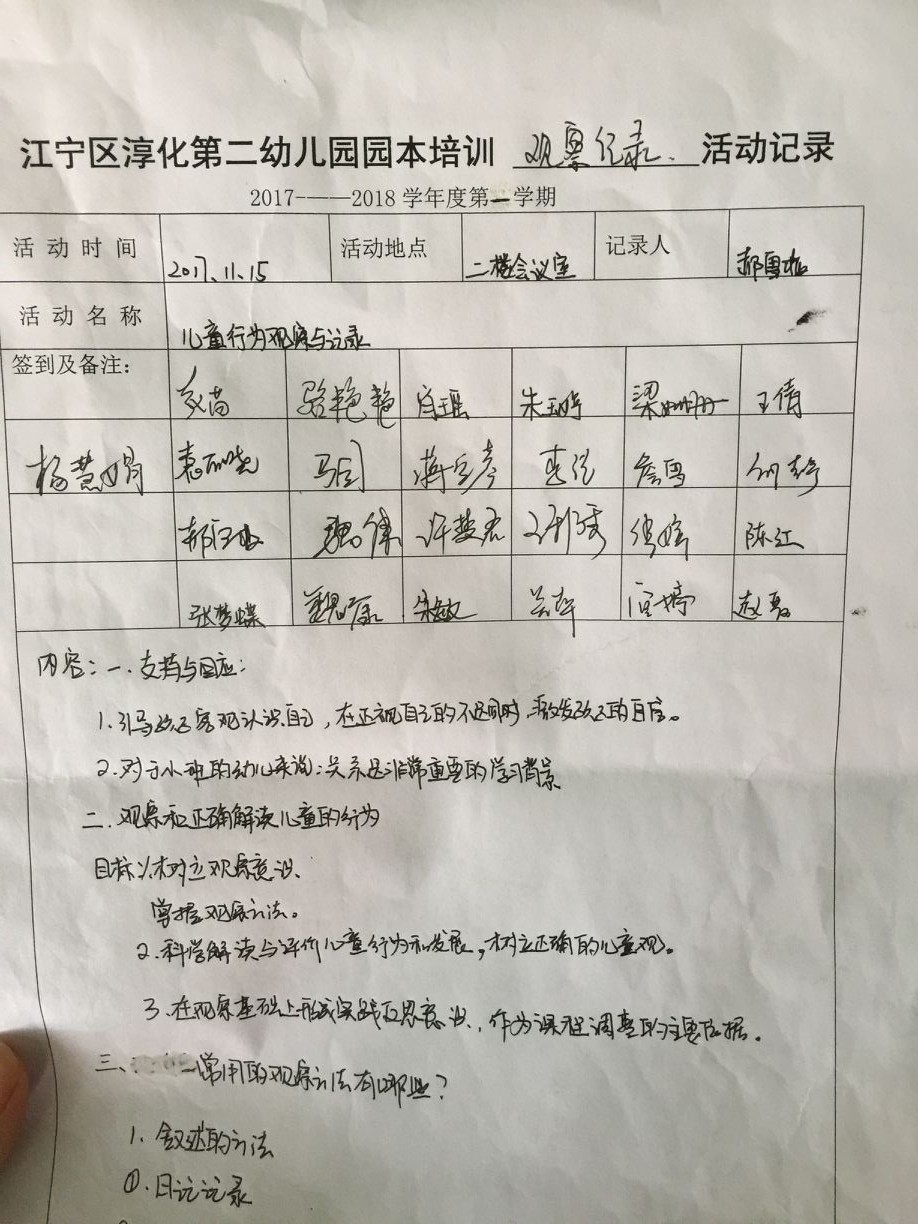 江宁区淳化第二幼儿园园本培训 观察记录、 活动记录
2017-——2018 学年度第一学期
活动时间 2017、11、15 活动地点 二楼会议室 记录人
活动名称 儿童行为观察与记录
签到及备注： 骆艳艳 肖瑶 朱玉婷 梁姗姗 王倩
杨慧娟 袁丽晓 马园 詹雪
魏伟 许梦君 陈红
张梦蝶 朱敏 汪婷 赵磊
内容：一、支持与回应：
1、引导幼儿客观认识自己，在正视自己的不足同时，激发幼儿的自信。
2、对于小班的幼儿来说：关系是非常重要的学习背景
二、观察和正确解读儿童的行为
目标：1、树立观察意识、
掌握观察方法。
2、科学解读与评价儿童行为和发展，树立正确的儿童观。
3、在观察基础上形成实践反思意识，作为课程调整的主要依据。
三、常用的观察方法有哪些？
1、叙述的方法
①、日记记录